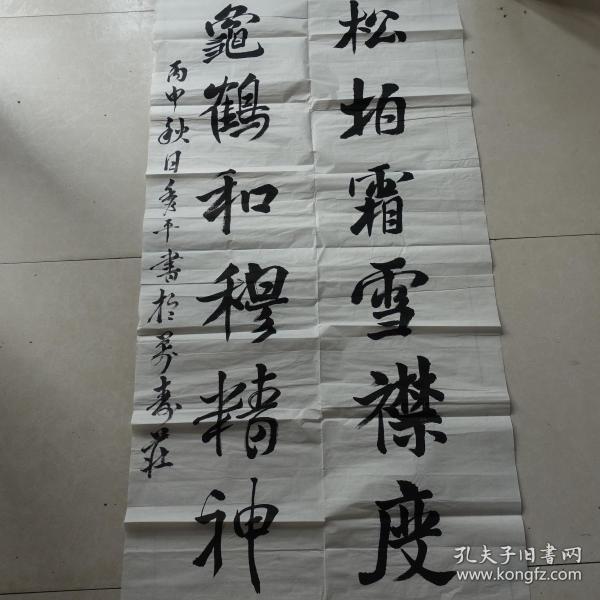 松柏霜雪襟度
龜鶴和穆精神
丙申秋日秀平書於萬壽莊
孔夫子旧书网
www.kongfz.com